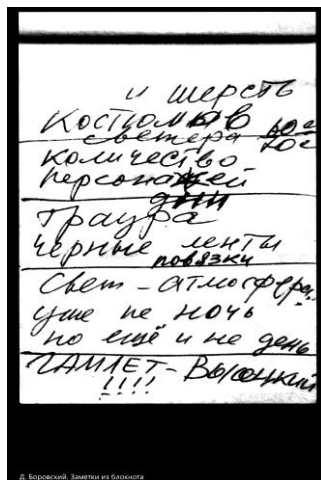 и шерсть
Костюмы в
свитера
количество
персонажей
дни
траура
чёрные ленты
повязки
Свет - атмосфера
уже не ночь
но ещё и не день
ГАМЛЕТ - Высоцкий
!!!!
Д. Боровский. Заметки из блокнота